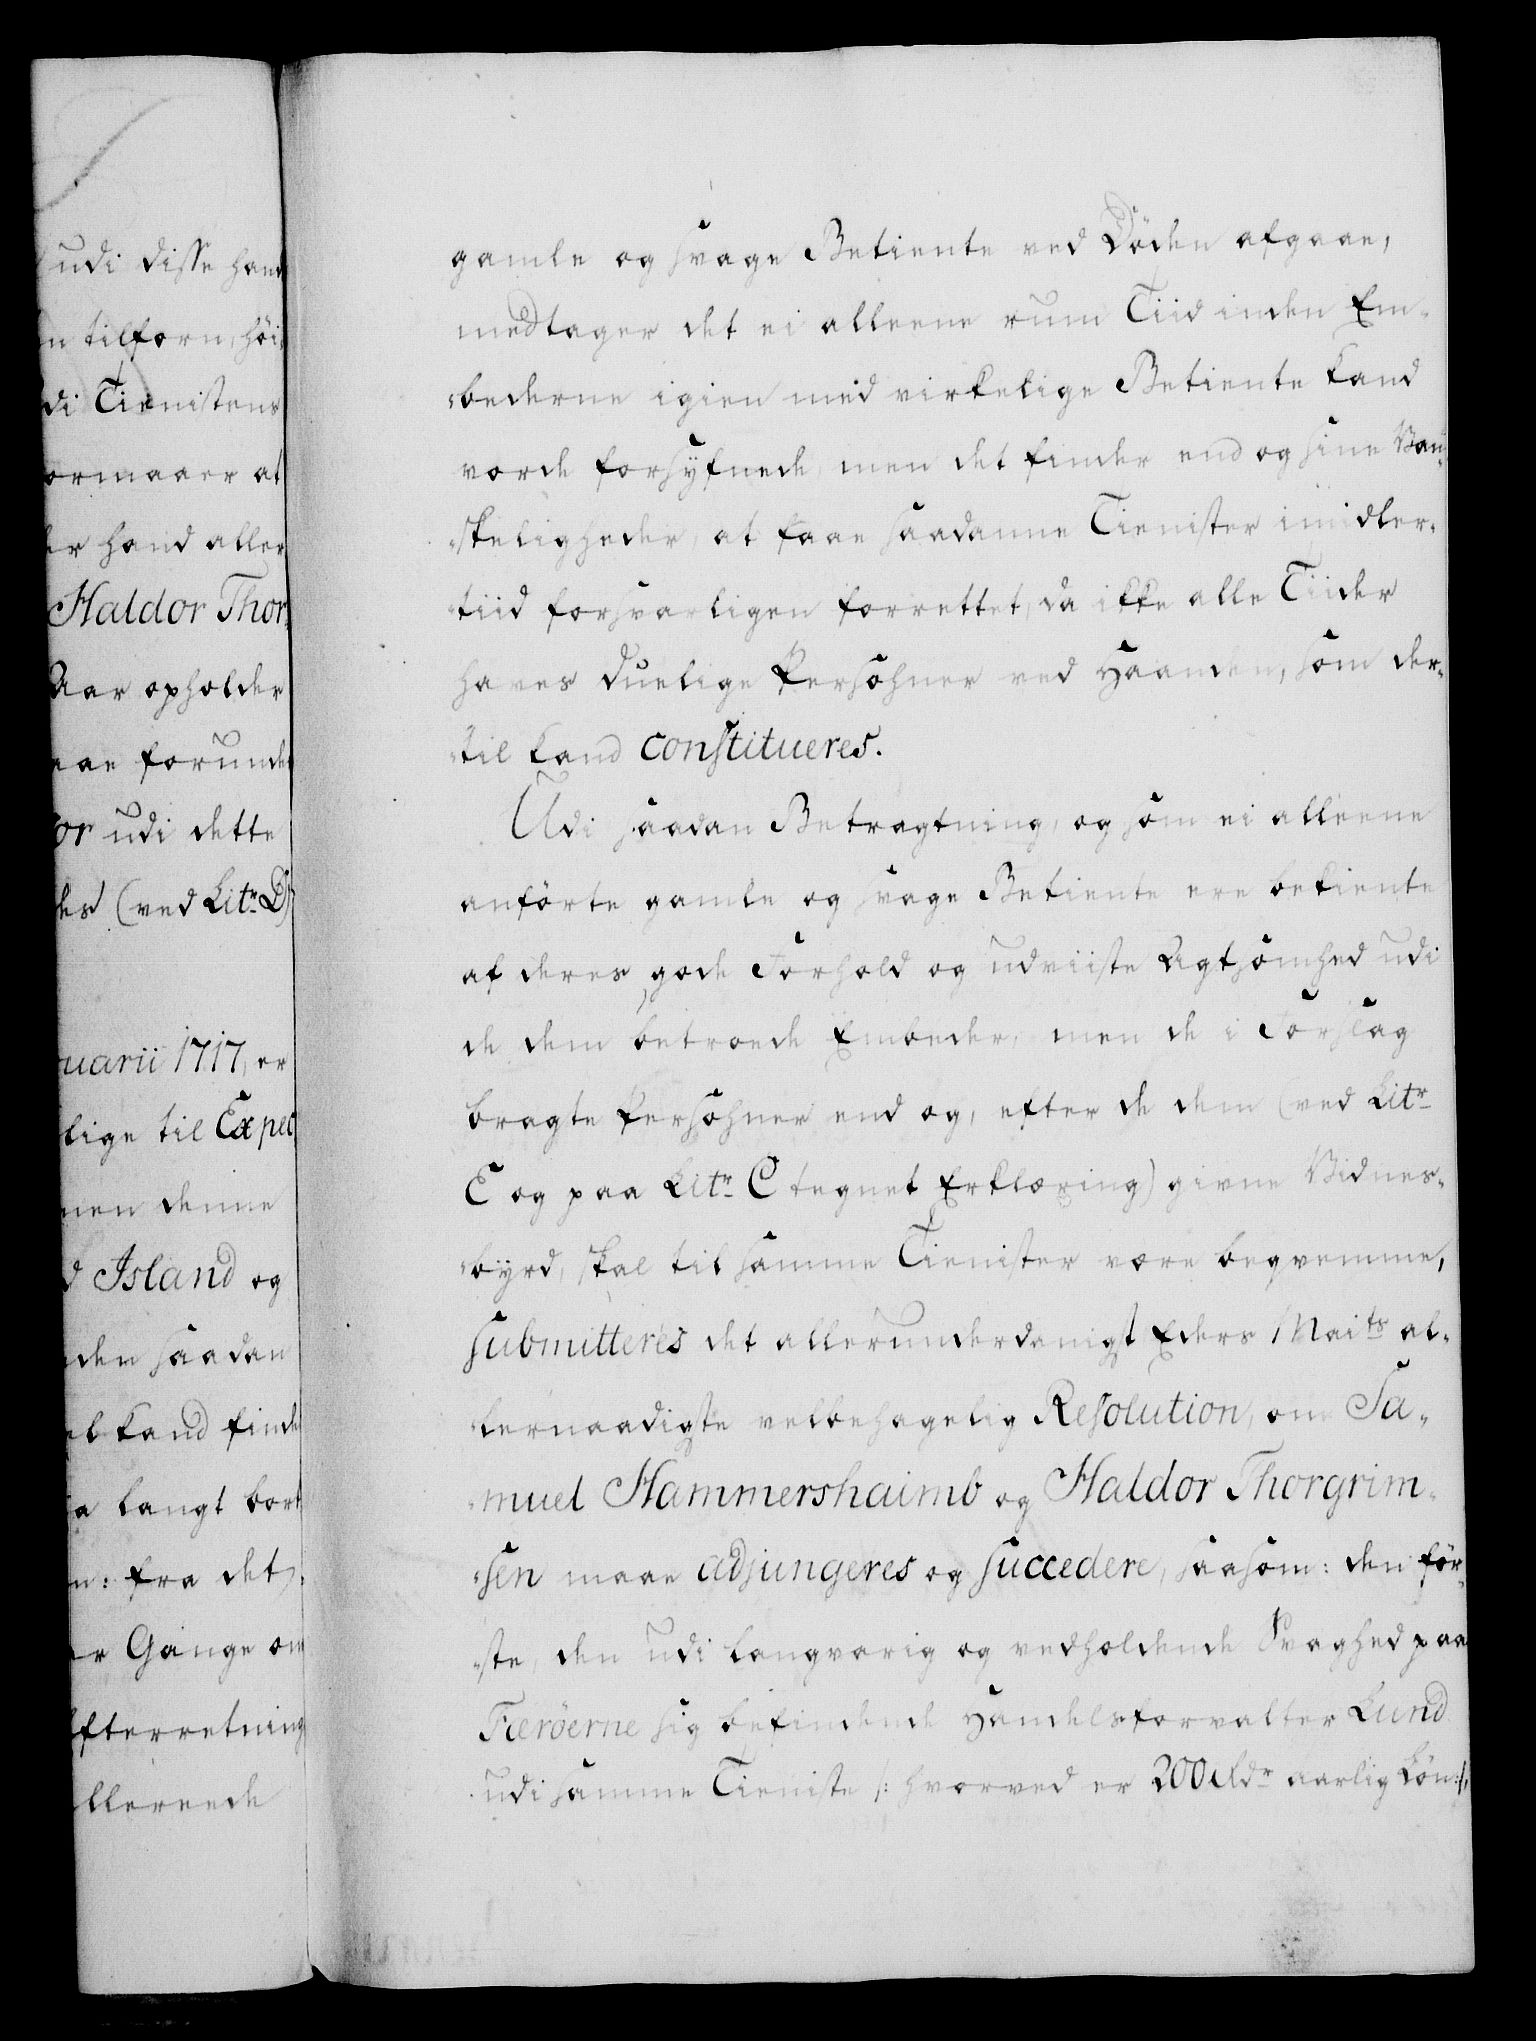 udi disse hand
n tilforn, höi
di Tienistens
ormaaer at
er hand aller
Haldor Thor
Aar opholder
aae forunde
or udi dette
des (ved Litr D)
uarii 1717, er
lige til Exped
men denne
d Island og
den saadan
el kand finde
a langt bort
n: fra det
er Gange om
fterretning
llereede
gamle og svage Betiente ved Döden afgaae,
medtager det ei alleene rum Tiid inden Em-
bederne igien med virkelige Betiente kand
vorde forsÿfnede, men det finder end og sine Van-
skeligheder, at faae saadanne Tienister imidler-
tiid forsvarligen forrettet, da ikke alle Tiider
haves duelige Persohner ved Haanden, som der-
til kand constitueres.
Udi saadan Betragtning, og som ei alleene
anförte gamle og svage Betiente ere bekiente
af deres gode Forhold og udviiste Agtsomhed udi
de dem betroede Embeder, men de i Forslag
bragte Persohner end og, efter de dem (ved Litr
E og paa Litr C tegnet Erklæring) givne Vidnes-
bÿrd, skal til samme Tienister være beqvemme,
submitteres det allerunderdanigst Eders Maits al-
lernaadigste velbehagelig Resolution, om Sa-
muel Hammershaimb og Haldor Thorgrim-
sen maae adjungeres og succedere, saasom: den för-
ste, den udi langvarig og vedholdende Svaghed paa
Færöerne sig befindende Handelsforvalter Lund
udi samme Tieniste /: hvorved er 200 Rdr aarlig Lön :/,